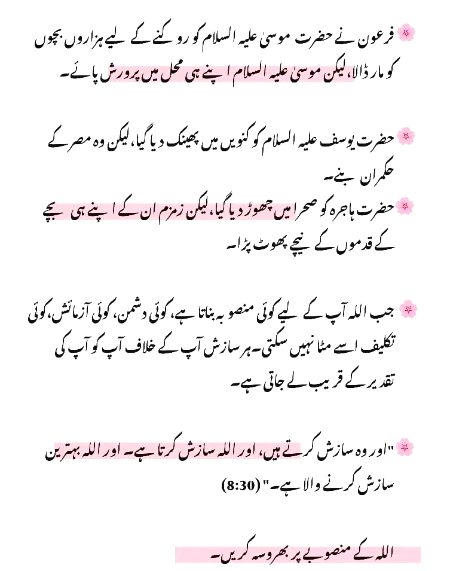 فرعون نے حضرت موسیٰ علیہ السلام کو روکنے کے لیے ہزاروں بچوں
کو مار ڈالا،لیکن موسیٰ علیہ السلام اپنے ہی محل میں پرورش پائے۔
حضرت یوسف علیہ السلام کو کنویں میں پھینک دیا گیا،لیکن وہ مصر کے
حکمران بنے۔
حضرت ہاجرہ کو صحرا میں چھوڑ دیا گیا،لیکن زمزم ان کے اپنے ہی بچے
کے قدموں کے نیچے پھوٹ پڑا۔
جب اللہ آپ کے لیے کوئی منصوبہ بناتا ہے،کوئی دشمن،کوئی آزمائش،کوئی
تکلیف اسے مٹا نہیں سکتی۔ہر سازش آپ کے خلاف آپ کو آپ کی
تقدیر کے قریب لے جاتی ہے۔
"اور وہ سازش کرتے ہیں، اور اللہ سازش کرتا ہے۔ اور اللہ بہترین
سازش کرنے والا ہے۔" (8:30)
اللہ کے منصوبے پر بھروسہ کریں۔